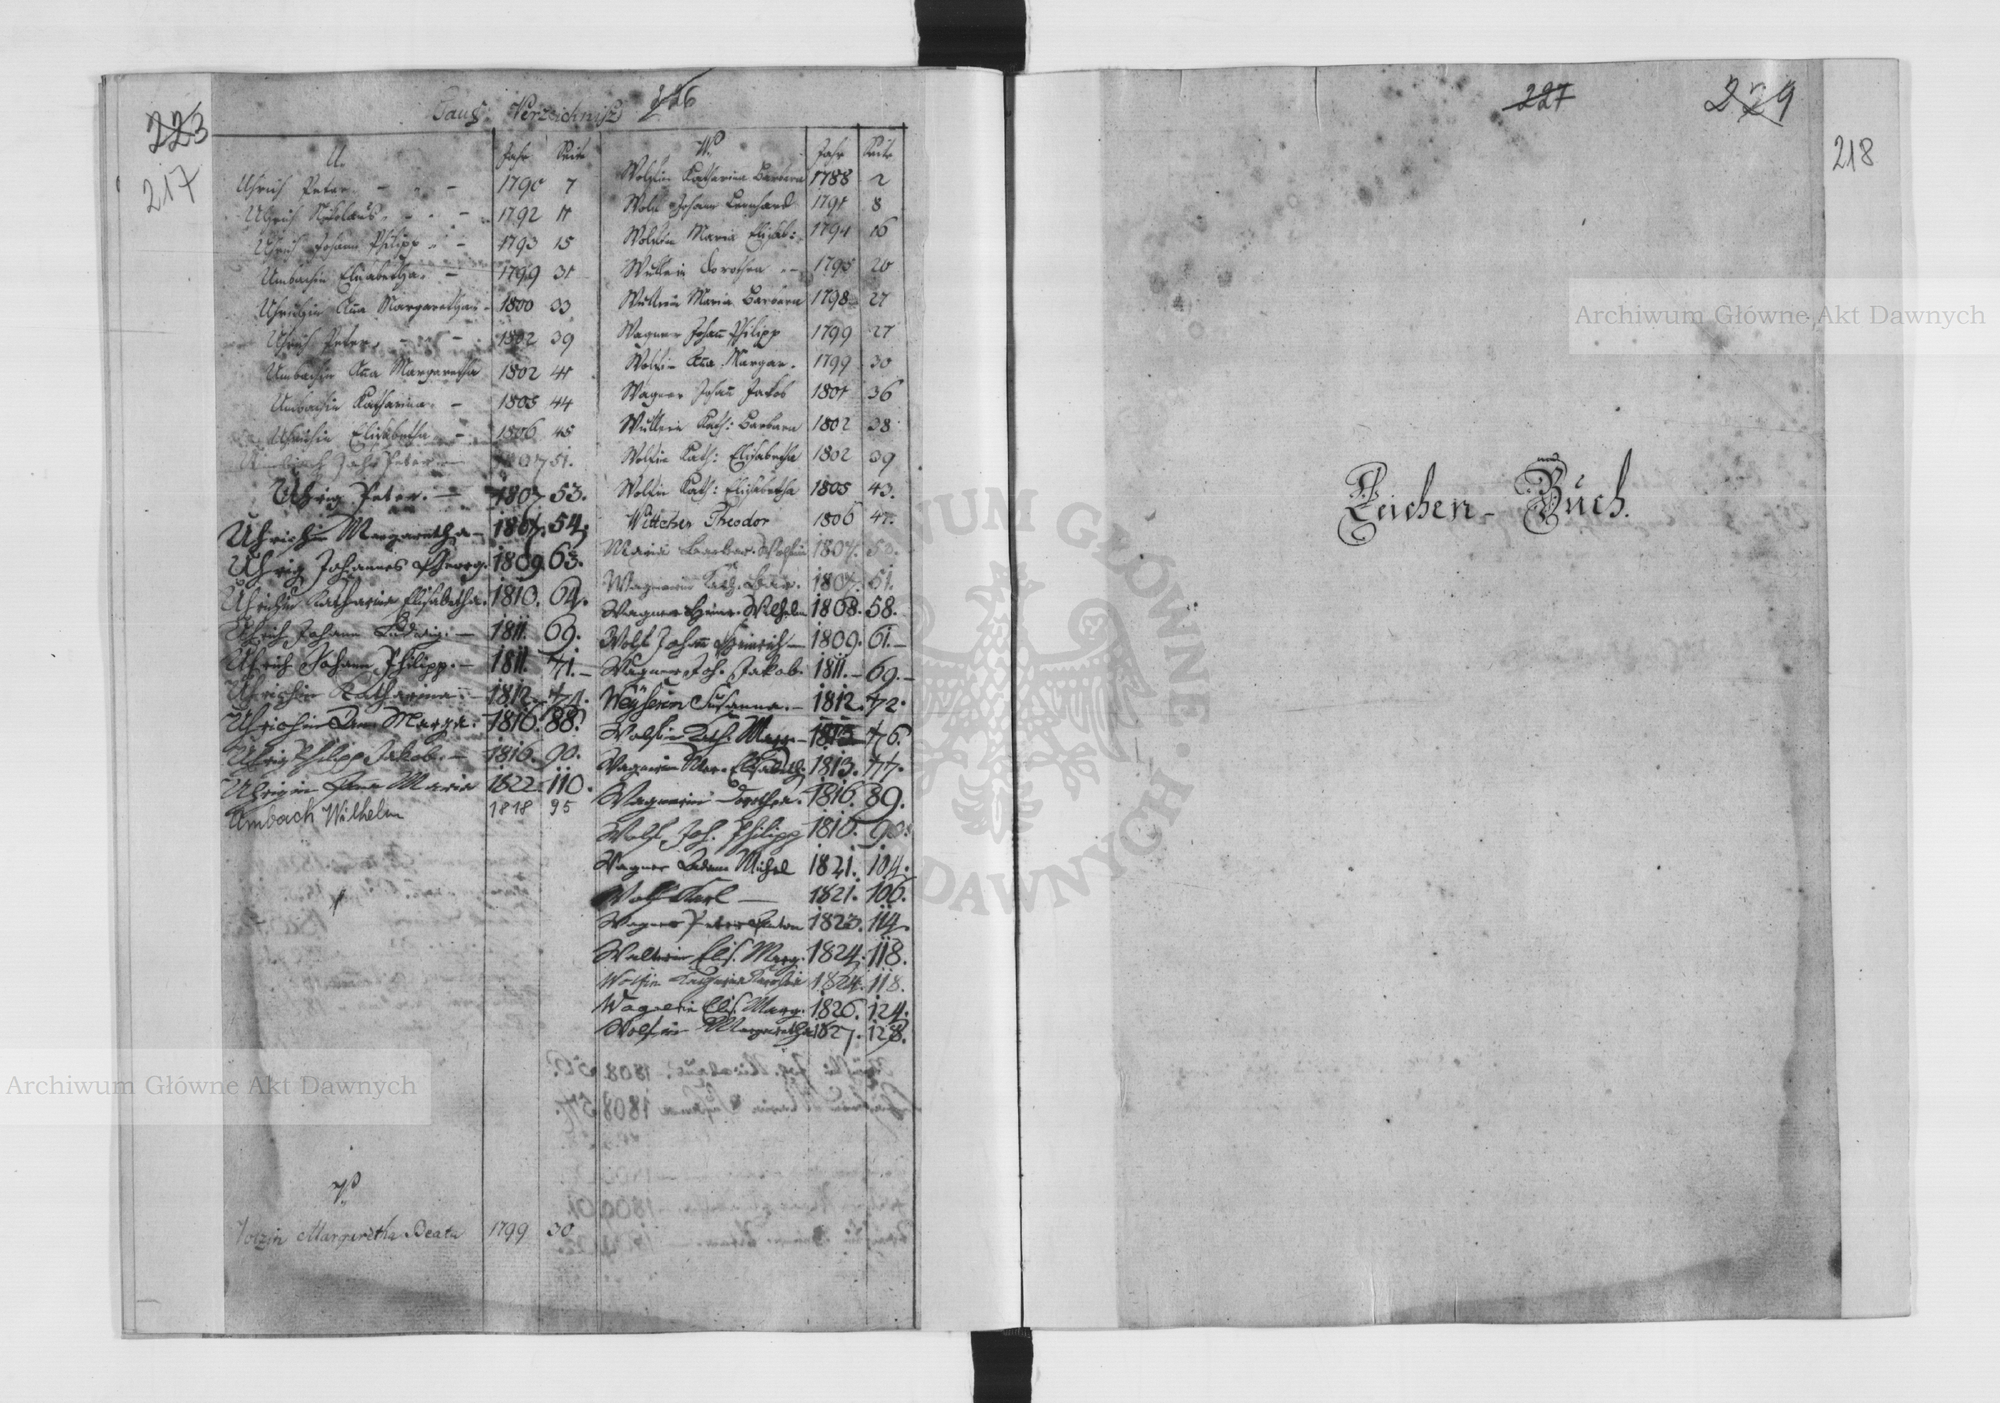 223
217
Tauf Verzeichniß 226
U. Jahr Seite
Uhrich Peter - - - 1790 7
Uhrich Nikolaus - - 1792 11
Uhrich Johann Philipp - - 1793 15
Umbachin Elisabetha. - 1799 31
Uhrichin Ana Margaretha - 1800 33
Uhrich Peter. - - 1802 39
Umbachin Ana Margaretha 1802 41
Umbachin Katharina - 1805 44
Uhrichin Elisabetha - 1806 45
Umbach Joh. Peter 1807 51.
Uhrig Peter. - 1807 53.
Uhrichin Margaretha - 1807. 54.
Uhrig Johannes Georg. 1809. 63.
Uhrichin Katharina Elisabetha. 1810. 64.
Uhrich Johann Ludwig. - 1811. 69.
Uhrich Johann Philipp. - 1811. 71. -
Uhrichin Katharina. - 1812. 74.
Uhrichin Anna Marga. 1816. 88.
Uhrig Philipp Jakob. - 1816. 90.
Uhrigin Anna Maria 1822. 110.
Umbach Wilhelm 1818 95
V.
Volzin Margaretha Beata 1799 30
W. Jahr Seite
Wolfin Katharina Barbara 1788 2
Wolf Johann Leonhard 1791 8
Wolfin Maria Elisab: 1794 16
Dorothea - 1795 20
Maria Barbara 1798 27
Wagner Johan Philipp 1799 27
Wolfin Ana Margar. 1799 30
Wagner Johan Jakob 1801 36
Kath: Barbara 1802 38
Wolfin Kath: Elisabetha 1802 39
Wolfin Kath: Elisabetha 1805 43.
Wittcher Theodor 1806 47.
Maria Barbar. Wolfin 1807. 50.
Wagnerin Kath. Barb. 1807. 51.
Wagner Heinr. Wilhelm 1808. 58.
Wolf Johan Heinrich - 1809. 61. -
Wagner Joh. Jakob. 1811. - 69. -
Susanna. - 1812. 72.
Wolfin Cath. Marg. - 1813 76.
Wagnerin Mar. Elisabeth. 1813. 77.
Wagnerin Dorothea. 1816. 89.
Wolf Joh. Philipp 1816. 90.
Wagner Adam Michel 1821. 104.
Wolf Karl - 1821. 106.
Wagner Peter Anton 1823. 114.
Walterin Elis. Marg. 1824. 118.
Wolfin Katharina 1824. 118.
Wagnerin Elis. Marg. 1826. 124.
Wolfin Margaretha 1827. 128.
227
229
218
Leichen-Buch.
Archiwum Główne Akt Dawnych
Archiwum Główne Akt Dawnych
ARCHIWUM GŁÓWNE AKT DAWNYCH